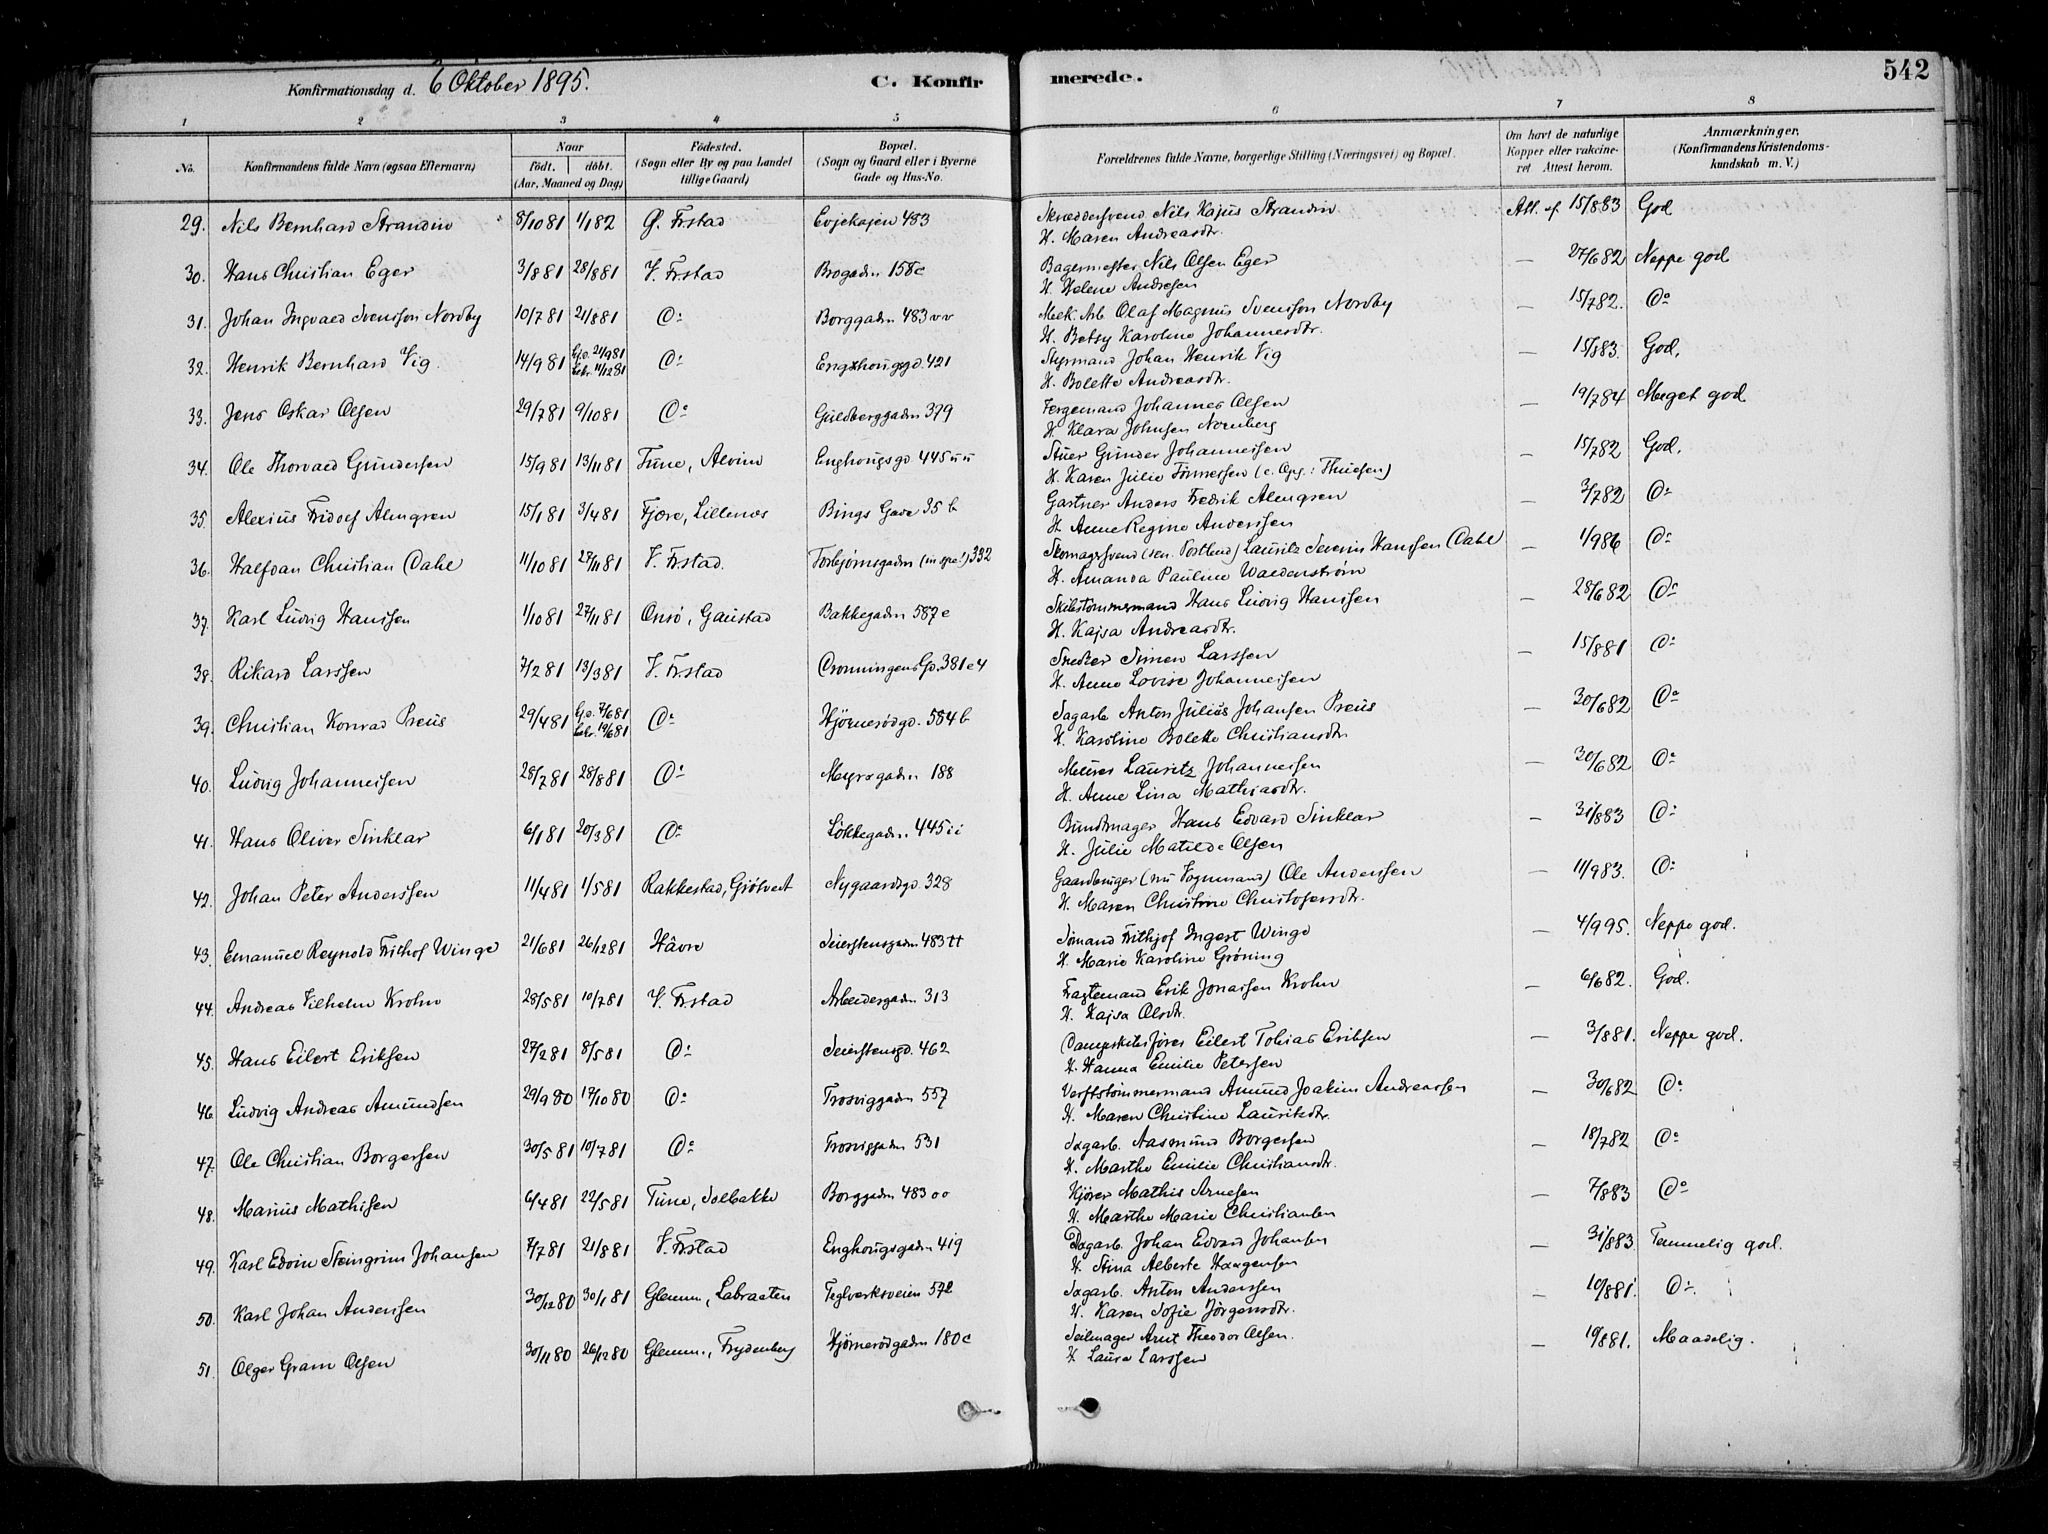 Konfirmationsdag d. 6 Oktober 1895.
C. Konfirmerede.
542
1 2 3 4 5 6 7 8
No. Konfirmandens fulde Navn (ogsaa Efternavn)
Naar
födt. döbt.
(Aar, Maaned og Dag)
Födested.
(Sogn eller By og paa Landet tillige Gaard)
Bopæl.
(Sogn og Gaard eller i Byerne Gade og Hus-No.
Forældrenes fulde Navne, borgerlige Stilling (Næringsvei) og Bopæl.
Om havt de naturlige Kopper eller vakcineret Attest herom.
Anmærkninger.
(Konfirmandens Kristendomskundskab m. V.)
29. Nils Bernhard Strandin 8/10 81 1/1 82 Ø. Frstad Evjekajen 483 Skræddersvend Nils Kajus Strandin Att. af 15/8 83 God
H. Maren Andreasdtr.
30. Hans Christian Eger 3/8 81 28/8 81 V. Frstad Brogaden 158c Bagermester Nils Olsen Eger — 27/6 82 Neppe god
H. Helene Andresen
31. Johan Ingvald Svensson Nordby 10/7 81 21/8 81 Do Borggaden 483vv Mek. Arb Olaf Magnus Svensson Nordby — 15/7 82. Do
H. Betsy Karoline Johannesdtr.
32. Henrik Bernhard Vig. 14/9 81 hjd. 21/9 81 bekr. 11/12 81 Do Enghougsgd. 421 Styrmand Johan Henrik Vig — 15/8 83. God.
H. Bolette Andreasdtr.
33. Jens Oskar Olsen 29/7 81 9/10 81 Do Guldberggaden 379 Fergemand Johannes Olsen — 19/7 84 Meget god
H. Klara Johnsen Nornberg
34. Ole Thorvald Gundersen 15/9 81 13/11 81 Tune, Alvim Enghougsgd 445uu Stuer Gunder Johannesen — 15/7 82 God.
H. Karen Julie Tinnessen (e. Opg: Thuesen)
35. Alexius Fridolf Almgren 15/1 81 3/4 81 Fjære, Lillenæs Bings Gade 35 b Gartner Anders Fredrik Almgren — 3/7 82 Do
H. Anne Regine Anderssen
36. Halfdan Christian Dahl 11/10 81 27/11 81 V. Frstad. Torbjørnsgaden (in spe!) 332 Skomagersvend (sen. Postbud) Lauritz Severin Hanssen Dahl — 1/9 86 Do
H. Amanda Pauline Waldenstrøm
37. Karl Ludvig Hanssen 1/10 81 27/11 81 Onsö, Gaustad Bakkegaden 587 e Skibstømmermand Hans Ludvig Hanssen — 28/6 82 Do
H. Kajsa Andreasdtr.
38. Rikard Larssen 7/2 81 13/3 81 V. Frstad Cronningens Gd. 381 e4 Snedker Simen Larssen — 15/8 81 Do
H. Anne Lovise Johannesen
39. Christian Konrad Preus 29/4 81 hjd. 7/6 81 bekr. 19/6 81 Do Hjørnerødgd. 584 b Sagarb. Anton Julius Johansen Preus — 30/6 82 Do
H. Karoline Bolette Christiansdtr
40. Ludvig Johannesen 28/7 81 28/8 81 Do Myrsgaden 188 Murer Lauritz Johannesen — 30/6 82 Do
H. Anne Lina Mathiasdtr.
41. Hans Oliver Sinklar 6/1 81 20/3 81 Do Løkkegaden 445 ii Bundtmager Hans Edvard Sinklar — 31/8 83 Do
H. Julie Matilde Olsen
42. Johan Peter Anderssen 11/4 81 1/5 81 Rakkestad, Gjølvert Nygaardsgd. 328 Gaardbruger (nu Vognmand) Ole Anderssen — 11/9 83. Do
H. Maren Christine Christofersdtr.
43. Emanuel Reynold Frithof Winge 21/6 81 26/12 81 Hâvre Seierstensgaden 483 tt Sömand Frithjof Ingert Winge — 4/9 95. Neppe god.
H. Marie Karoline Grøning
44. Andreas Vilhelm Krohn 28/5 81 10/7 81 V. Frstad Arbeidergaden 313 Fragtemand Erik Jonassen Krohn — 6/6 82. God.
H. Kajsa Olsdtr.
45. Hans Eilert Eriksen 27/2 81 8/5 81 Do Seierstensgd. 462 Dampskibsfører Eilert Tobias Eriksen — 3/8 81. Neppe god.
H. Hanna Emilie Petersen
46. Ludvig Andreas Amundsen 29/9 80 17/10 80 Do Trosviggaden 557 Verftstømmermand Amund Joakim Andreassen — 30/6 82 Do
H. Maren Christine Lauritzdtr.
47. Ole Christian Borgersen 30/5 81 10/7 81 Do Trosviggaden 531 Sagarb. Aasmund Borgersen — 18/7 82 Do
H. Marthe Emilie Christiansdtr.
48. Marius Mathisen 6/4 81 22/5 81 Tune, Solbakke Borggaden 483 oo Kjører Mathis Arnesen — 7/8 83 Do
H. Marthe Marie Christiansen
49. Karl Edvin Steingrim Johansen 7/7 81 21/8 81 V. Frstad Enghougsgaden 419 Dagarb. Johan Edvard Johansen — 31/8 83 Temmelig god.
H. Stina Alberte Haagensen
50. Karl Johan Anderssen 30/12 80 30/1 81 Glemm., Labraaten Teglverksveien 572 Sagarb. Anton Anderssen — 10/8 81. Do.
H. Karen Sofie Jörgensdtr.
51. Olger Gram Olsen 30/11 80 26/12 80 Glemm., Frydenberg Hjørnerødgaden 180c Seilmager Arnt Theodor Olsen. — 19/8 81. Maadelig.
H Laura Larssen